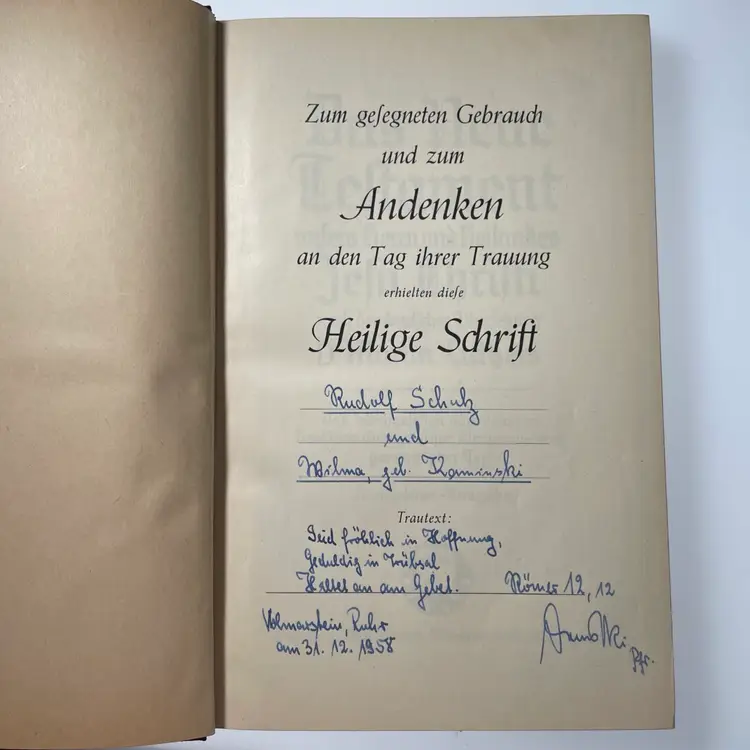 Zum geſegneten Gebrauch
und zum
Andenken
an den Tag ihrer Trauung
erhielten dieſe
Heilige Schrift
Rudolf Schulz
und
Wilma, geb. Kaminski
Trautext:
Seid fröhlich in Hoffnung,
Geduldig in Trübsal
Haltet an am Gebet. Römer 12, 12
Volmarstein, Ruhr
am 31. 12. 1958
Pfr.